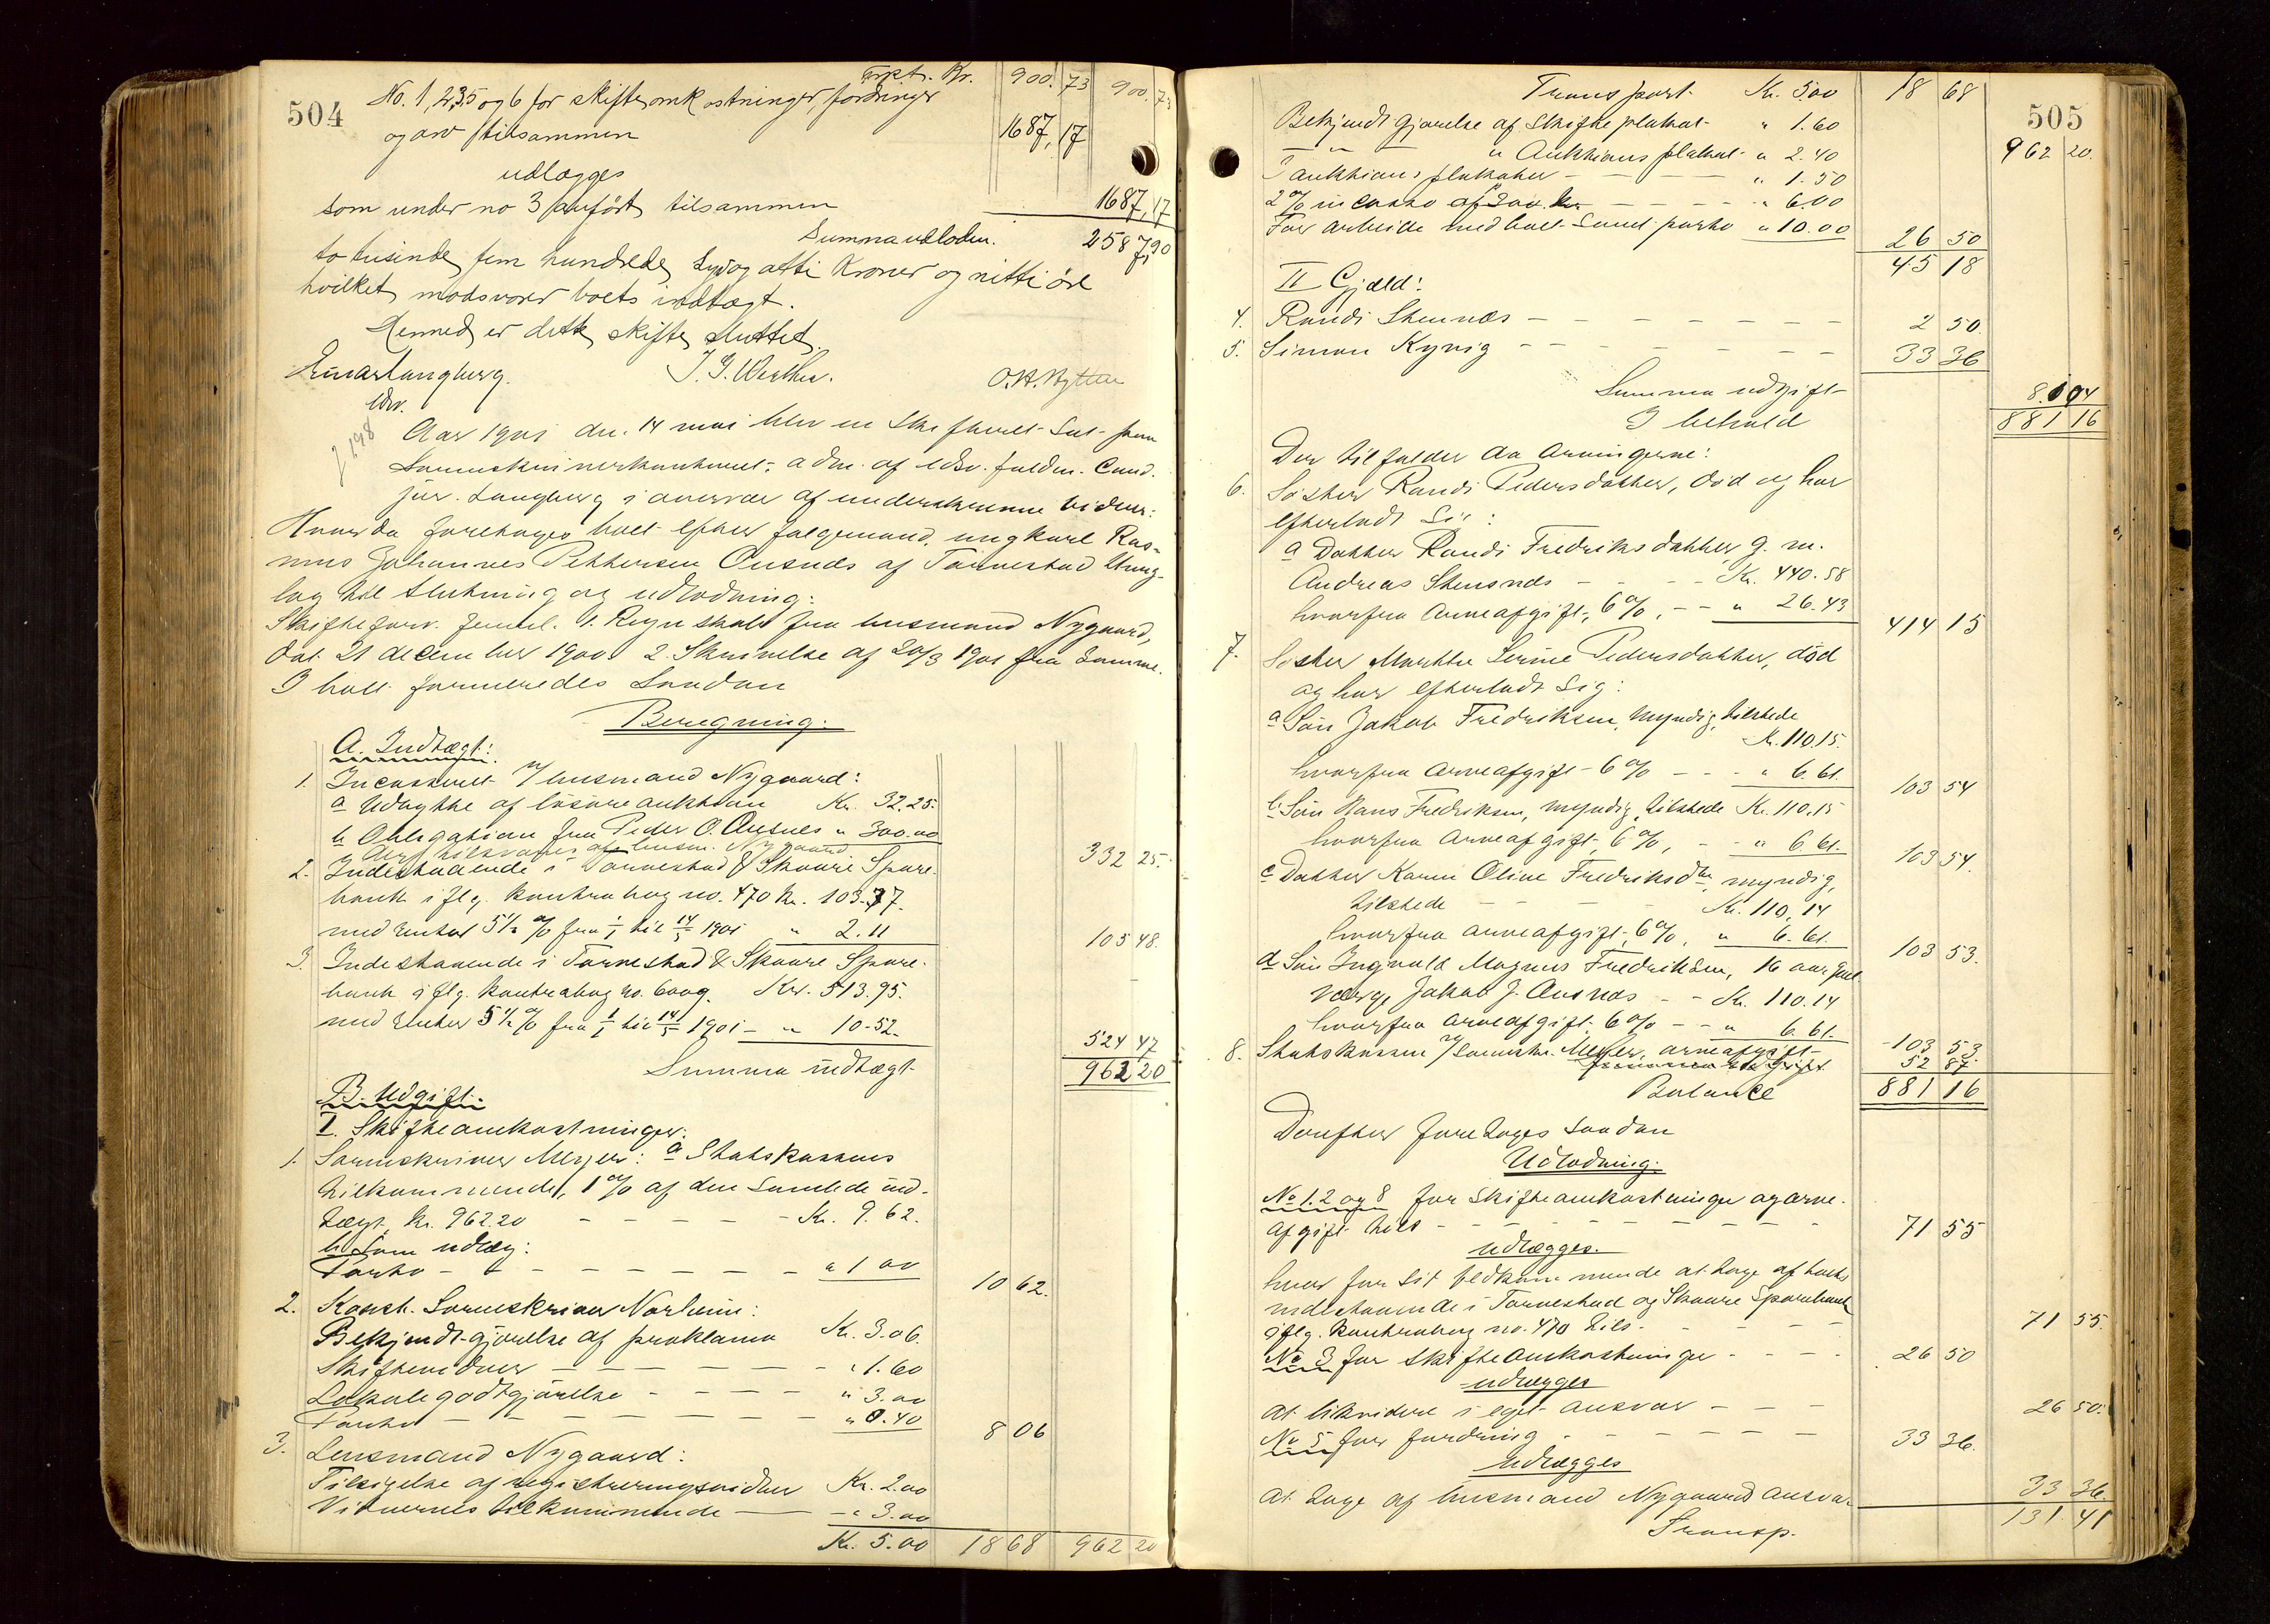 504
Trpt. Kr. 900.73 900.73
No. 1, 2, 3, 5 og 6 for skifteomkostninger, fordringer
og arv tilsammen 1687,17
udlægges
som under no 3 anført, tilsammen 1687,17
Summa udlodn. 2587,90
to tusinde, fem hundrede, syv og otti Kroner og nitti øre
hvilket modsvarer boets indtægt.
Hermed er dette skifte sluttet.
Einar Langberg. J. G. Wather. O. H. Hytten
edsv.
Aar 1901 den 14 mai blev en Skifteret Sat paa
Sorenskriverkontoret, adm. af edsv. fuldm. Cand.
jur. Langberg i overvær af underskrevne vidner:
Hvorda foretoges boet efter følgemand, ungkarl Ras-
mus Johannes Pettersen Ousnes af Torvestad thing-
lag til Slutning og udlodning.
Skifteforv. freml. 1. Regnskab fra lensmand Nygaard,
dat. 21 december 1900 2. Skrivelse af 20/3 1901 fra Samme.
I boet formeredes Saadan
Beregning:
A. Indtægt:
1. Incasseret v/ lensmand Nygaard:
a Udbytte af løsøreauktion Kr. 32.25.
b Obligation fra Peder O. Ausnes " 300.00
332 25.
2. Indestaaende i Torvestad & Skaare Spare-
bank iflg. kontrabog no. 470 Kr. 103.37.
med Renter 5 1/2 % fra 1/1 til 14/5 1901 " 2.11
105 48.
3. Indestaaende i Torvestad & Skaare Spare-
bank iflg. kontrabog no. 6009. Kr. 513.95.
med Renter 5 1/2 % fra 1/1 til 14/5 1901 - " 10.52.
524 47
Summa indtægt 962 20
B. Udgift:
I. Skifteomkostninger:
1. Sorenskriver Meyer: a Statskassens
tilkommende, 1 % af den Samlede ind-
tægt, kr. 962.20 - - - - - Kr. 9.62.
b Som udlæg:
Porto - - - - - - - " 1 00
10 62.
2. Konst. Sorenskriver Norheim:
Bekjendtgjørelse af proklama Kr. 3.06.
Skiftevidner - - - - - - " 1.60
Lokalegodtgjørelse - - - - " 3.00
Porto - - - - - - - " 0.40
8 06
3. Lensmand Nygaard:
Tilsigelse af registreringsvidner Kr. 2.00
Vidnernes tilkommende - " 3.00
Kr. 5.00 18 68 962 20
505
Transport Kr. 5.00 18 68
962 20.
Bekjendtgjørelse af Skifteplakat " 1.60
— " — " Auktionsplakat " 2.40
3 auktionsplakater - - - - " 1.50
2 % incasso af 300 kr. - - - - " 6.00
For arbeide med boet Samt porto " 10.00
26 50
45 18
II Gjæld:
4. Randi Stensnæs - - - - - - - 2 50.
5. Simon Kyvig - - - - - - - 33 36
Summa udgift 81 04
I behold 881 16
Der tilfalder da Arvingerne:
6. Søster Randi Pedersdatter, død og har
efterladt Sig:
a Datter Randi Fredriksdatter, g. m.
Andreas Stensnæs - - - - Kr. 440.58
hvorfra Arveafgift, 6 %, - - " 26.43
414 15
7. Søster Marthe Serine Pedersdatter, død
og har efterladt Sig:
a Søn Jakob Fredriksen, Myndig, tilstede
Kr. 110.15.
hvorfra Arveafgift 6 % - - - " 6.61.
103 54
b. Søn Hans Fredriksen, myndig, tilstede Kr. 110.15
hvorfra Arveafgift, 6 %, - - " 6 61.
103 54.
c Datter Karen Oline Fredriksdtr, myndig,
tilstede - - - - Kr. 110,14
hvorfra arveafgift, 6 %, " 6.61.
103 53.
d Søn Ingvald Magnus Fredriksen, 16 aar gml.
værge Jakob J. Ausnæs - - Kr. 110.14
hvorfra Arveafgift 6 % - - " 6.61.
103 53.
8. Statskassen v/ Sorenskr. Meyer, arveafgift
52 87.
Balance 881 16
Derefter foretoges Saadan
Udlodning:
No 1. 2 og 8 for Skifteomkostninger og arve-
afgift tils - - - - - - - - 71 55
udlægges.
hver for Sit vedkommende at tage af boets
indestaaende i Torvestad og Skaare Sparebank
iflg. kontrabog no. 470 tils. - - - - 71 55.
No 3 for Skifteomkostninger - - - - 26 50
udlægges
At likvidere i eget ansvar - - - 26 50.
No 5 for fordring - - - - - - 33 36.
udlægges
At tage af lensmand Nygaards ansvar 33 36.
Transp. 131.41